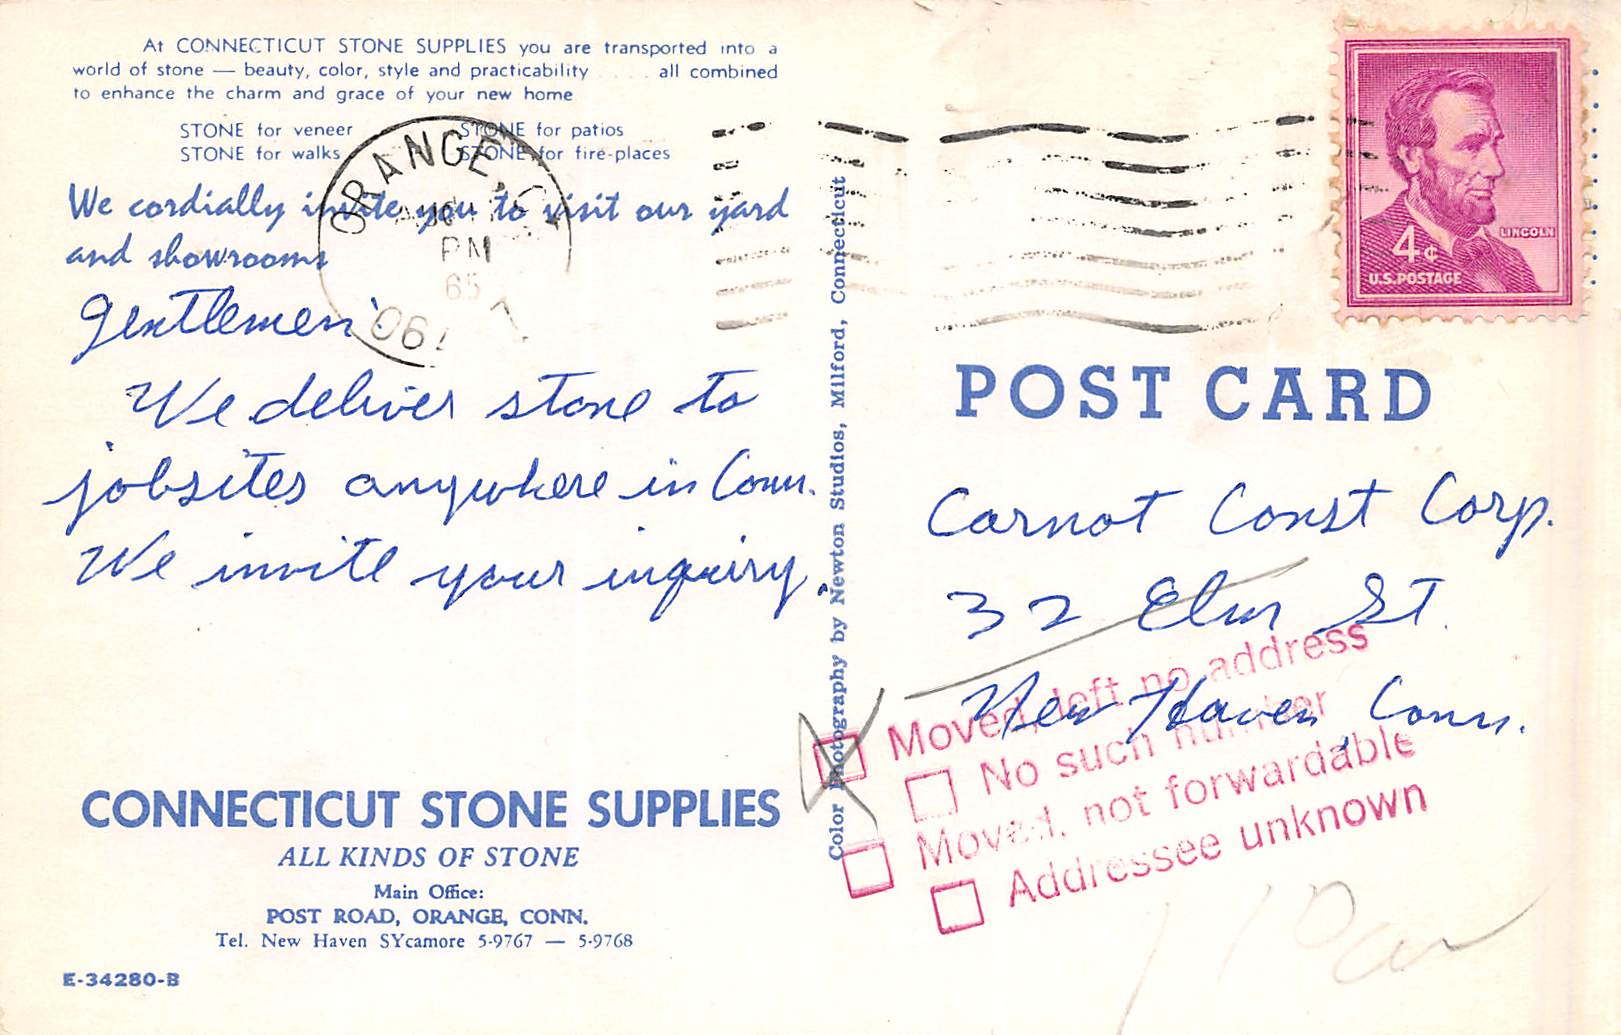 At CONNECTICUT STONE SUPPLIES you are transported into a
world of stone — beauty, color, style and practicability . . . . all combined
to enhance the charm and grace of your new home
STONE for veneer STONE for patios
STONE for walks STONE for fire-places
We cordially invite you to visit our yard
and showrooms
ORANGE, C
PM
65
Gentlemen:
We deliver stone to
jobsites anywhere in Conn.
We invite your inquiry.
CONNECTICUT STONE SUPPLIES
ALL KINDS OF STONE
Main Office:
POST ROAD, ORANGE, CONN.
Tel. New Haven SYcamore 5-9767 — 5-9768
E-34280-B
Color Photography by Newton Studios, Milford, Connecticut
LINCOLN
4¢
U.S. POSTAGE
POST CARD
Carnot Const Corp.
32 Elm St.
New Haven, Conn.
Moved, left no address
No such number
Moved, not forwardable
Addressee unknown